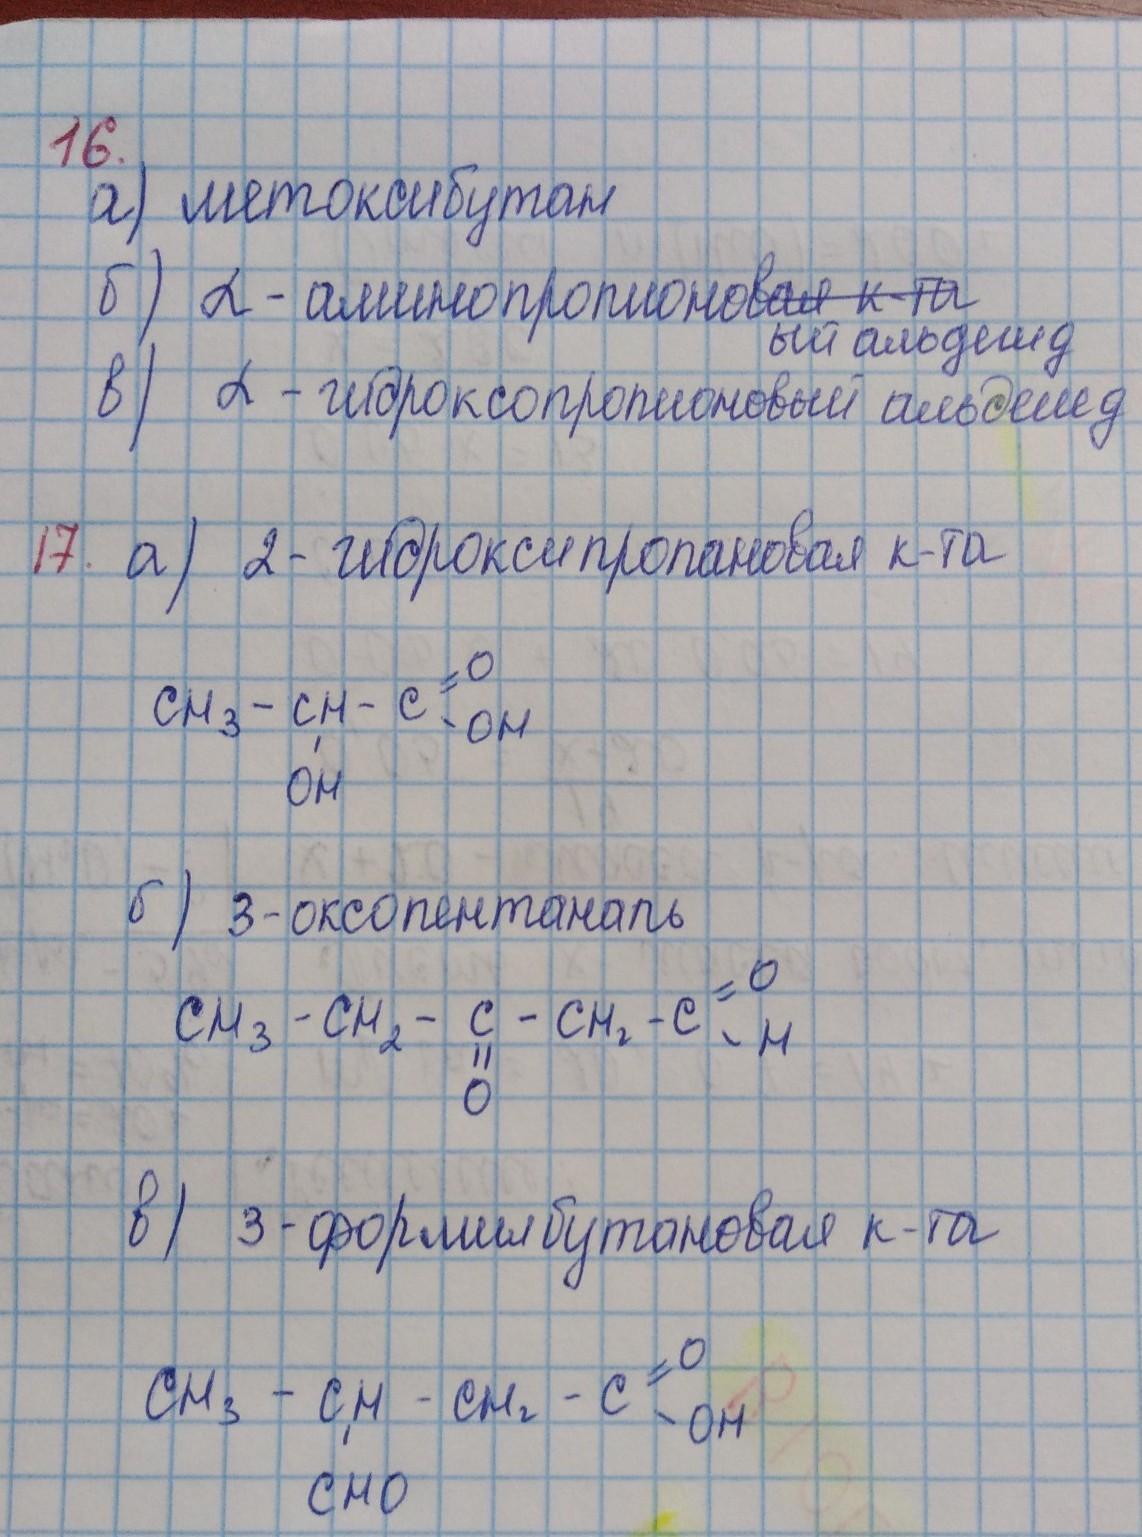 16.
а) метоксибутан
б) α - аминопропионовая к-та
ый альдегид
в) α - гидроксопропионовый альдегид
17. а) 2 - гидроксипропановая к-та
O
CH3 - CH - C
OH
OH
б) 3-оксопентаналь
O
CH3 - CH2 - C - CH2 - C
H
O
в) 3 - формилбутановая к-та
O
CH3 - CH - CH2 - C
OH
CHO